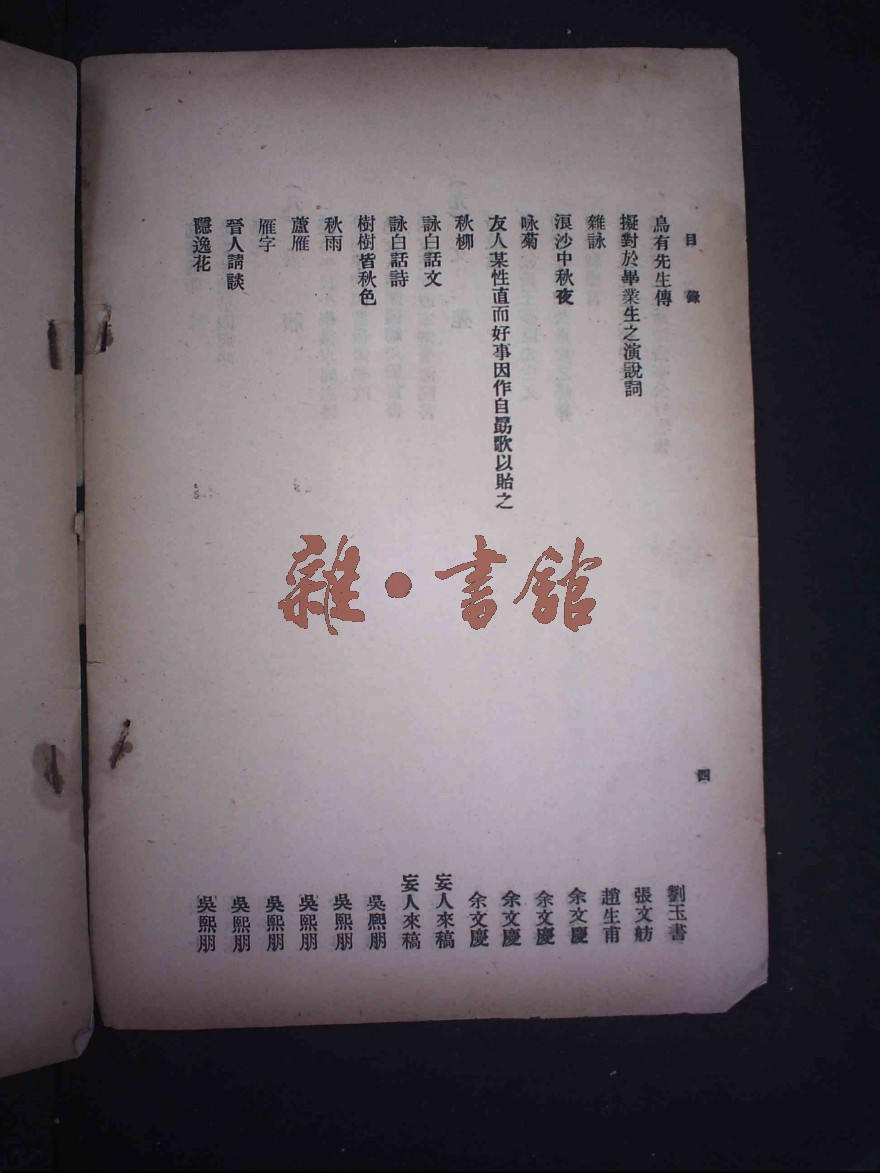 目錄
四
烏有先生傳 劉玉書
擬對於畢業生之演說詞 張文舫
雜詠 趙生甫
浪沙中秋夜 余文慶
咏菊 余文慶
友人某性直而好事因作自勗歌以貽之 余文慶
秋柳 余文慶
詠白話文 妄人來稿
詠白話詩 妄人來稿
樹樹皆秋色 吳熙朋
秋雨 吳熙朋
蘆雁 吳熙朋
雁字 吳熙朋
晉人請談 吳熙朋
隱逸花 吳熙朋
雜·書館